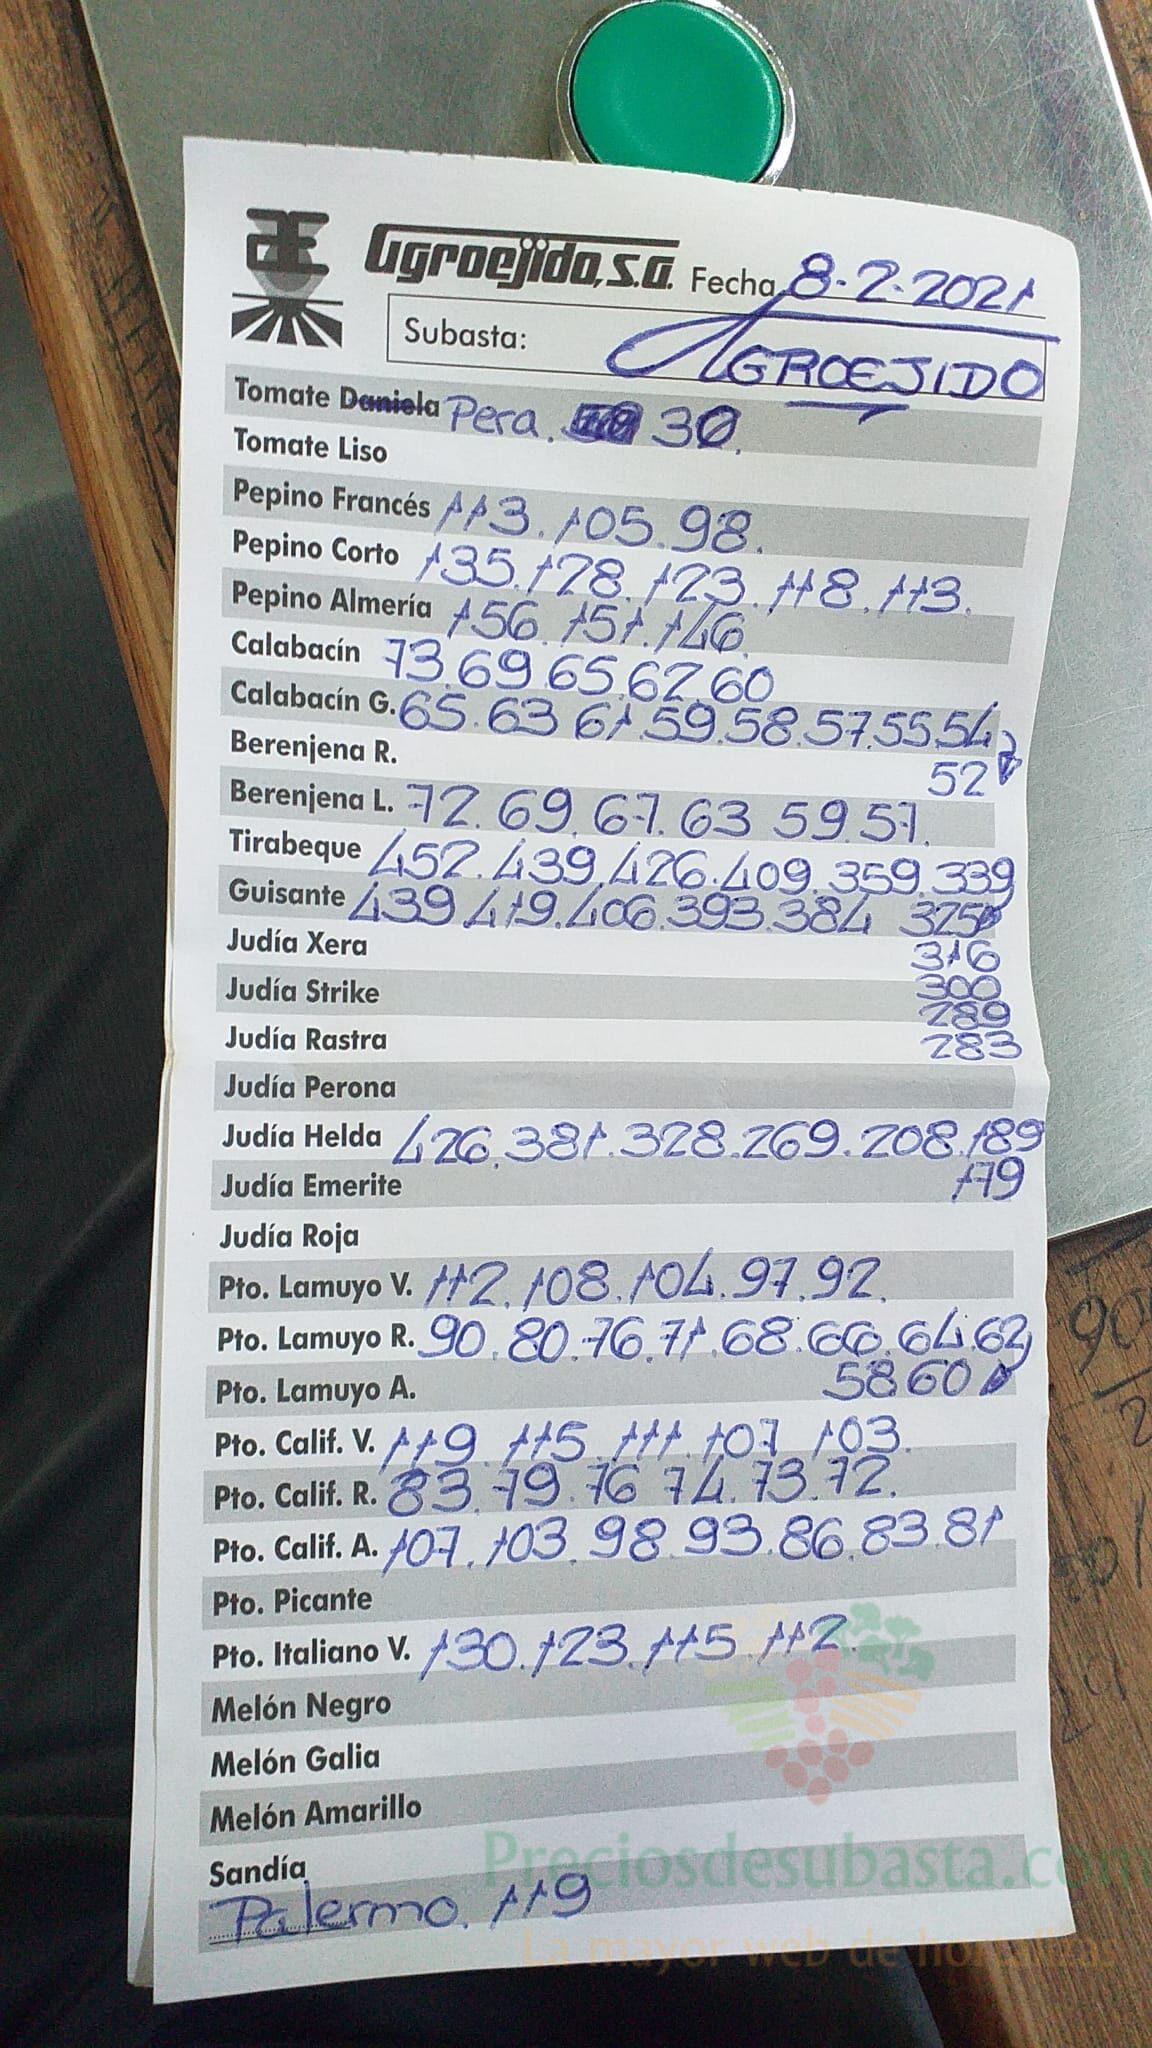 Agroejido, S.A. Fecha 8-2-2021
Subasta: AGROEJIDO
Tomate Daniela Pera. 30.
Tomate Liso
Pepino Francés 113.105.98.
Pepino Corto 135.128.123.118.113.
Pepino Almería 156.151.146.
Calabacín 73.69.65.62.60
Calabacín G. 65.63 61.59.58.57.55.54
52
Berenjena R.
Berenjena L. 72.69.67.63 59.57.
Tirabeque 452.439.426.409.359.339
Guisante 439 419.406.393.384 325
316
Judía Xera
300
Judía Strike
289
283
Judía Rastra
Judía Perona
Judía Helda 426.381.328.269.208.189
179
Judía Emerite
Judía Roja
Pto. Lamuyo V. 112.108.104.97.92.
Pto. Lamuyo R. 90.80.76.71.68.66.64.62
58.60
Pto. Lamuyo A.
Pto. Calif. V. 119.115.111.107 103.
Pto. Calif. R. 83.79.76 74.73.72.
Pto. Calif. A. 107.103.98.93.86.83.81
Pto. Picante
Pto. Italiano V. 130.123.115.112.
Melón Negro
Melón Galia
Melón Amarillo
Sandía
Palermo. 119
Preciosdesubasta.com
La mayor web de hortalizas
90
2